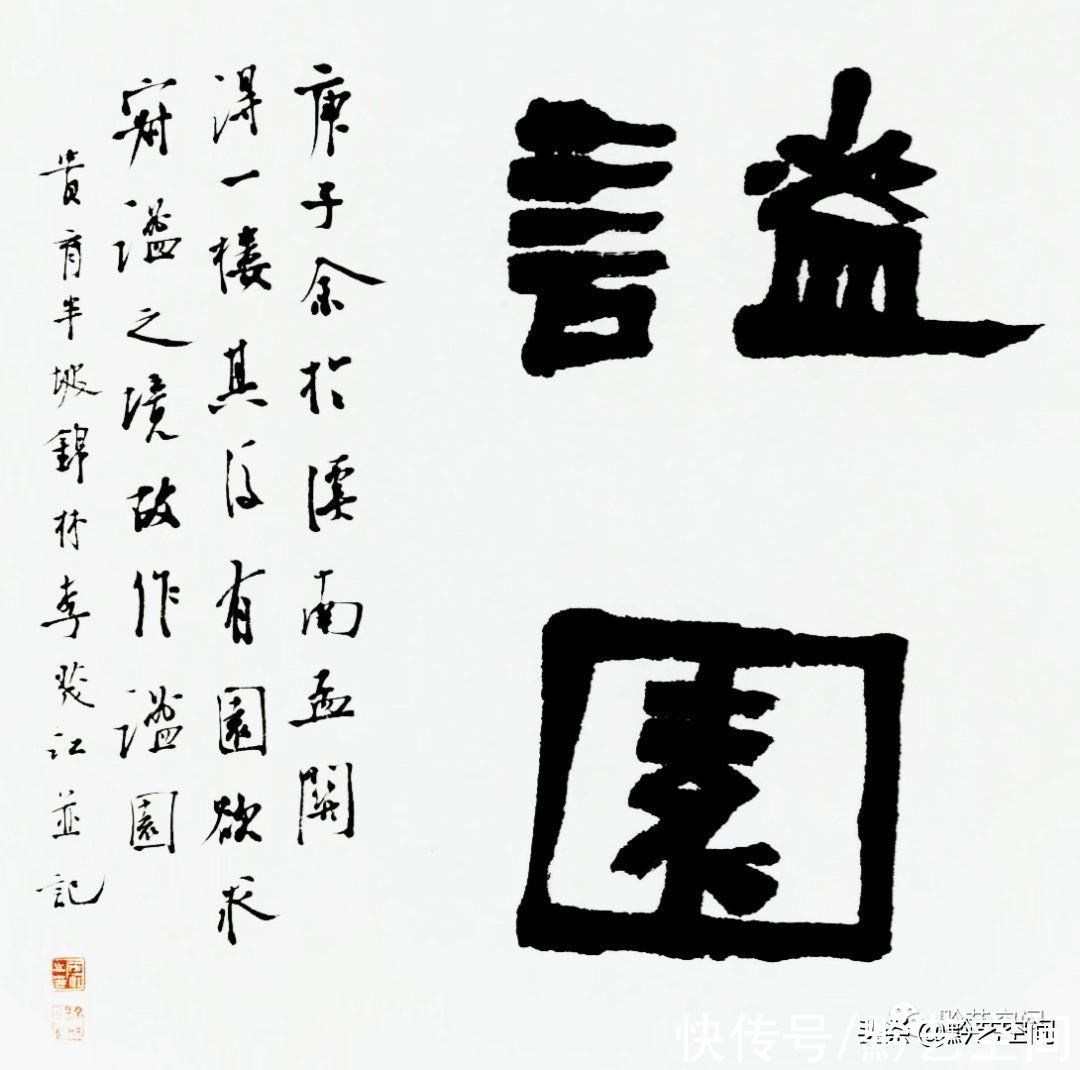 謐園
庚子余於溪南孟關
得一樓其後有園欲求
寂謐之境故作謐園
貴育半坡錦林李江並記
快传号/黔艺空间
头条 @黔艺空间